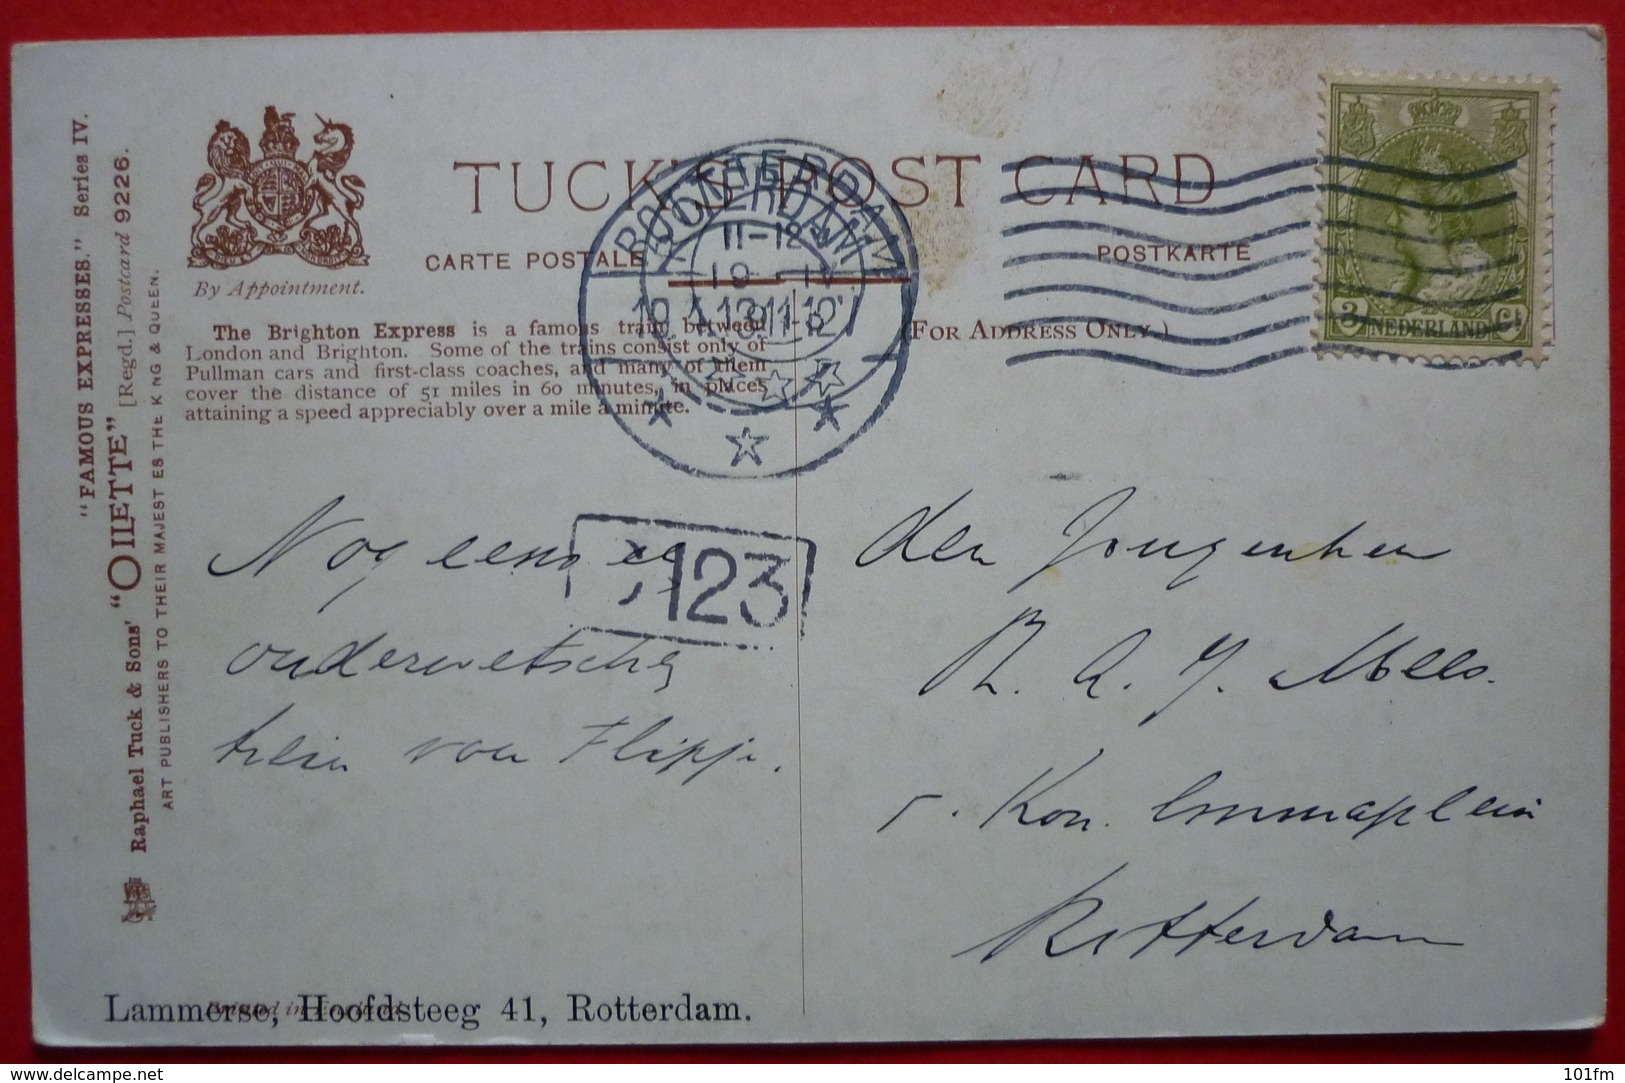 "FAMOUS EXPRESSES." Series IV.
"OILETTE" [Regd.] Postcard 9226.
Raphael Tuck & Sons'
ART PUBLISHERS TO THEIR MAJESTIES THE KING & QUEEN.
By Appointment.
TUCK'S POST CARD
CARTE POSTALE
POSTKARTE
(FOR ADDRESS ONLY.)
The Brighton Express is a famous train between
London and Brighton. Some of the trains consist only of
Pullman cars and first-class coaches, and many of them
cover the distance of 51 miles in 60 minutes, in places
attaining a speed appreciably over a mile a minute.
ROTTERDAM
ROTTERDAM
11-12
3 NEDERLAND Ct
123
Nog eens
ouderwetsche
trein van Flipje.
den Jongenheer
R. A. J. Mees.
Kon. Emmaplein
Rotterdam
Lammerse, Hoofdsteeg 41, Rotterdam.
www.delcampe.net
101fm